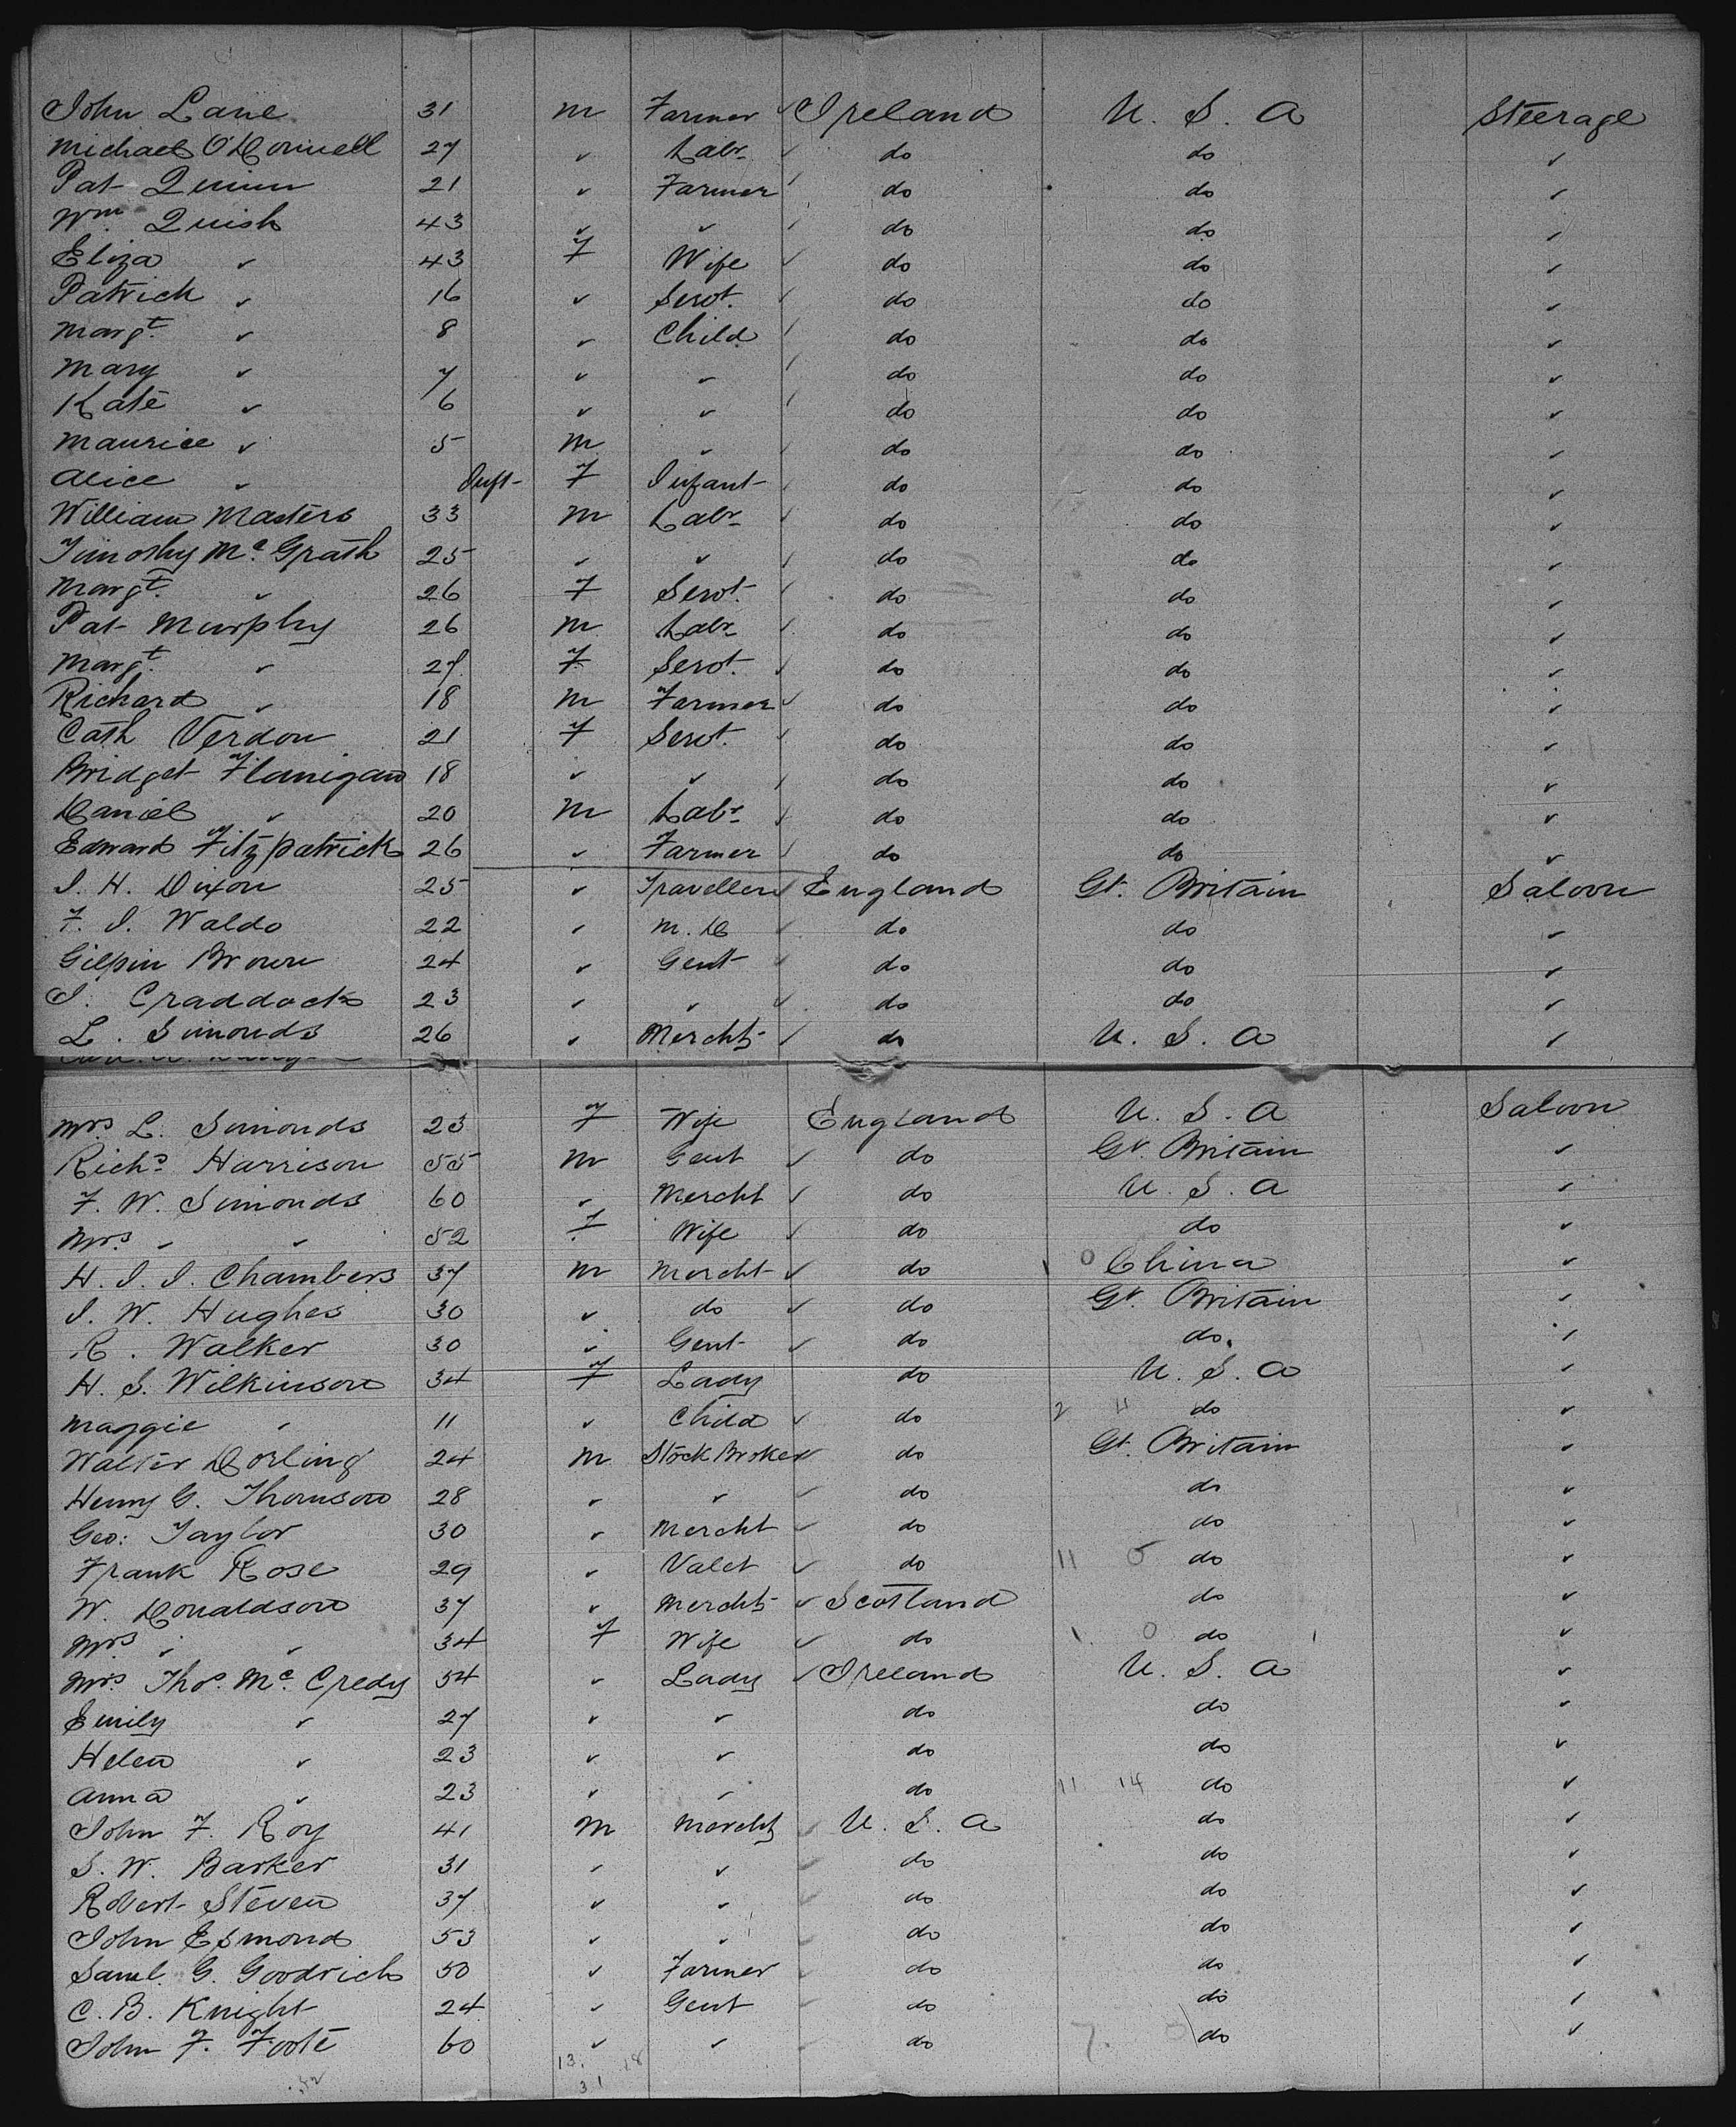 John Lane 31 m Farmer ✓ Ireland U. S. A Steerage
Michael O'Donnell 27 ✓ Labr ✓ do do ✓
Pat Quinn 21 ✓ Farmer ✓ do do ✓
Wm. Quish 43 ✓ ✓ ✓ do do ✓
Eliza ✓ 43 F Wife ✓ do do ✓
Patrick ✓ 16 ✓ Servt. ✓ do do ✓
Margt. ✓ 8 ✓ Child ✓ do do ✓
Mary ✓ 7 ✓ ✓ ✓ do do ✓
Kate ✓ 6 ✓ ✓ ✓ do do ✓
Maurice ✓ 5 m ✓ ✓ do do ✓
Alice ✓ Inft F Infant ✓ do do ✓
William Masters 33 m Labr ✓ do do ✓
Timothy Mc. Grath 25 ✓ ✓ ✓ do do ✓
Margt. ✓ 26 F Servt. ✓ do do ✓
Pat Murphy 26 m Labr ✓ do do ✓
Margt. ✓ 27 F Servt. ✓ do do ✓
Richard ✓ 18 m Farmer ✓ do do ✓
Cath Verdon 21 F Servt. do do ✓
Bridget Flanigan 18 ✓ ✓ ✓ do do ✓
Daniel ✓ 20 m Labr ✓ do do ✓
Edward Fitzpatrick 26 ✓ Farmer ✓ do do ✓
J. H. Dixon 25 ✓ Traveller ✓ England Gt. Britain Saloon
F. J. Waldo 22 ✓ M. D ✓ do do ✓
Gilpin Brown 24 ✓ Gent ✓ do do ✓
J. Craddock 23 ✓ ✓ ✓ do do ✓
L. Simonds 26 ✓ Mercht ✓ do U. S. A ✓
Mrs. L. Simonds 23 F Wife England U. S. A Saloon
Richd Harrison 55 m Gent ✓ do Gt. Britain ✓
F. W. Simonds 60 ✓ Mercht ✓ do U. S. A ✓
Mrs. ✓ ✓ 52 F Wife ✓ do do ✓
H. J. J. Chambers 37 m Mercht ✓ do 1 0 China ✓
J. W. Hughes 30 ✓ do ✓ do Gt. Britain ✓
R. Walker 30 ✓ Gent ✓ do do. ✓
H. S. Wilkinson 34 F Lady do U. S. A ✓
Maggie ✓ 11 ✓ Child ✓ do 2 4 do ✓
Walter Dorling 24 m Stock Broker ✓ do Gt. Britain ✓
Henry G. Thomson 28 ✓ ✓ ✓ do do ✓
Geo: Taylor 30 ✓ Mercht ✓ do do ✓
Frank Rose 29 ✓ Valet ✓ do 11 5 do ✓
W. Donaldson 37 ✓ Mercht ✓ Scotland do ✓
Mrs. ✓ ✓ 34 F Wife ✓ do 1 0 do 1 ✓
Mrs. Thos. Mc. Credy 54 ✓ Lady ✓ Ireland U. S. A ✓
Emily ✓ 27 ✓ ✓ do do ✓
Helen ✓ 23 ✓ ✓ do do ✓
Anna ✓ 23 ✓ ✓ do 11 14 do ✓
John F. Roy 41 m Mercht ✓ U. S. A do ✓
S. W. Barker 31 ✓ ✓ ✓ do do ✓
Robert Steven 37 ✓ ✓ ✓ do do ✓
John Esmond 53 ✓ ✓ ✓ do do ✓
Saml. G. Goodrich 50 ✓ Farmer ✓ do do ✓
C. B. Knight 24 ✓ Gent ✓ do do ✓
John F. Foote 60 ✓ ✓ ✓ do 7. 0 do ✓
13. 18
31